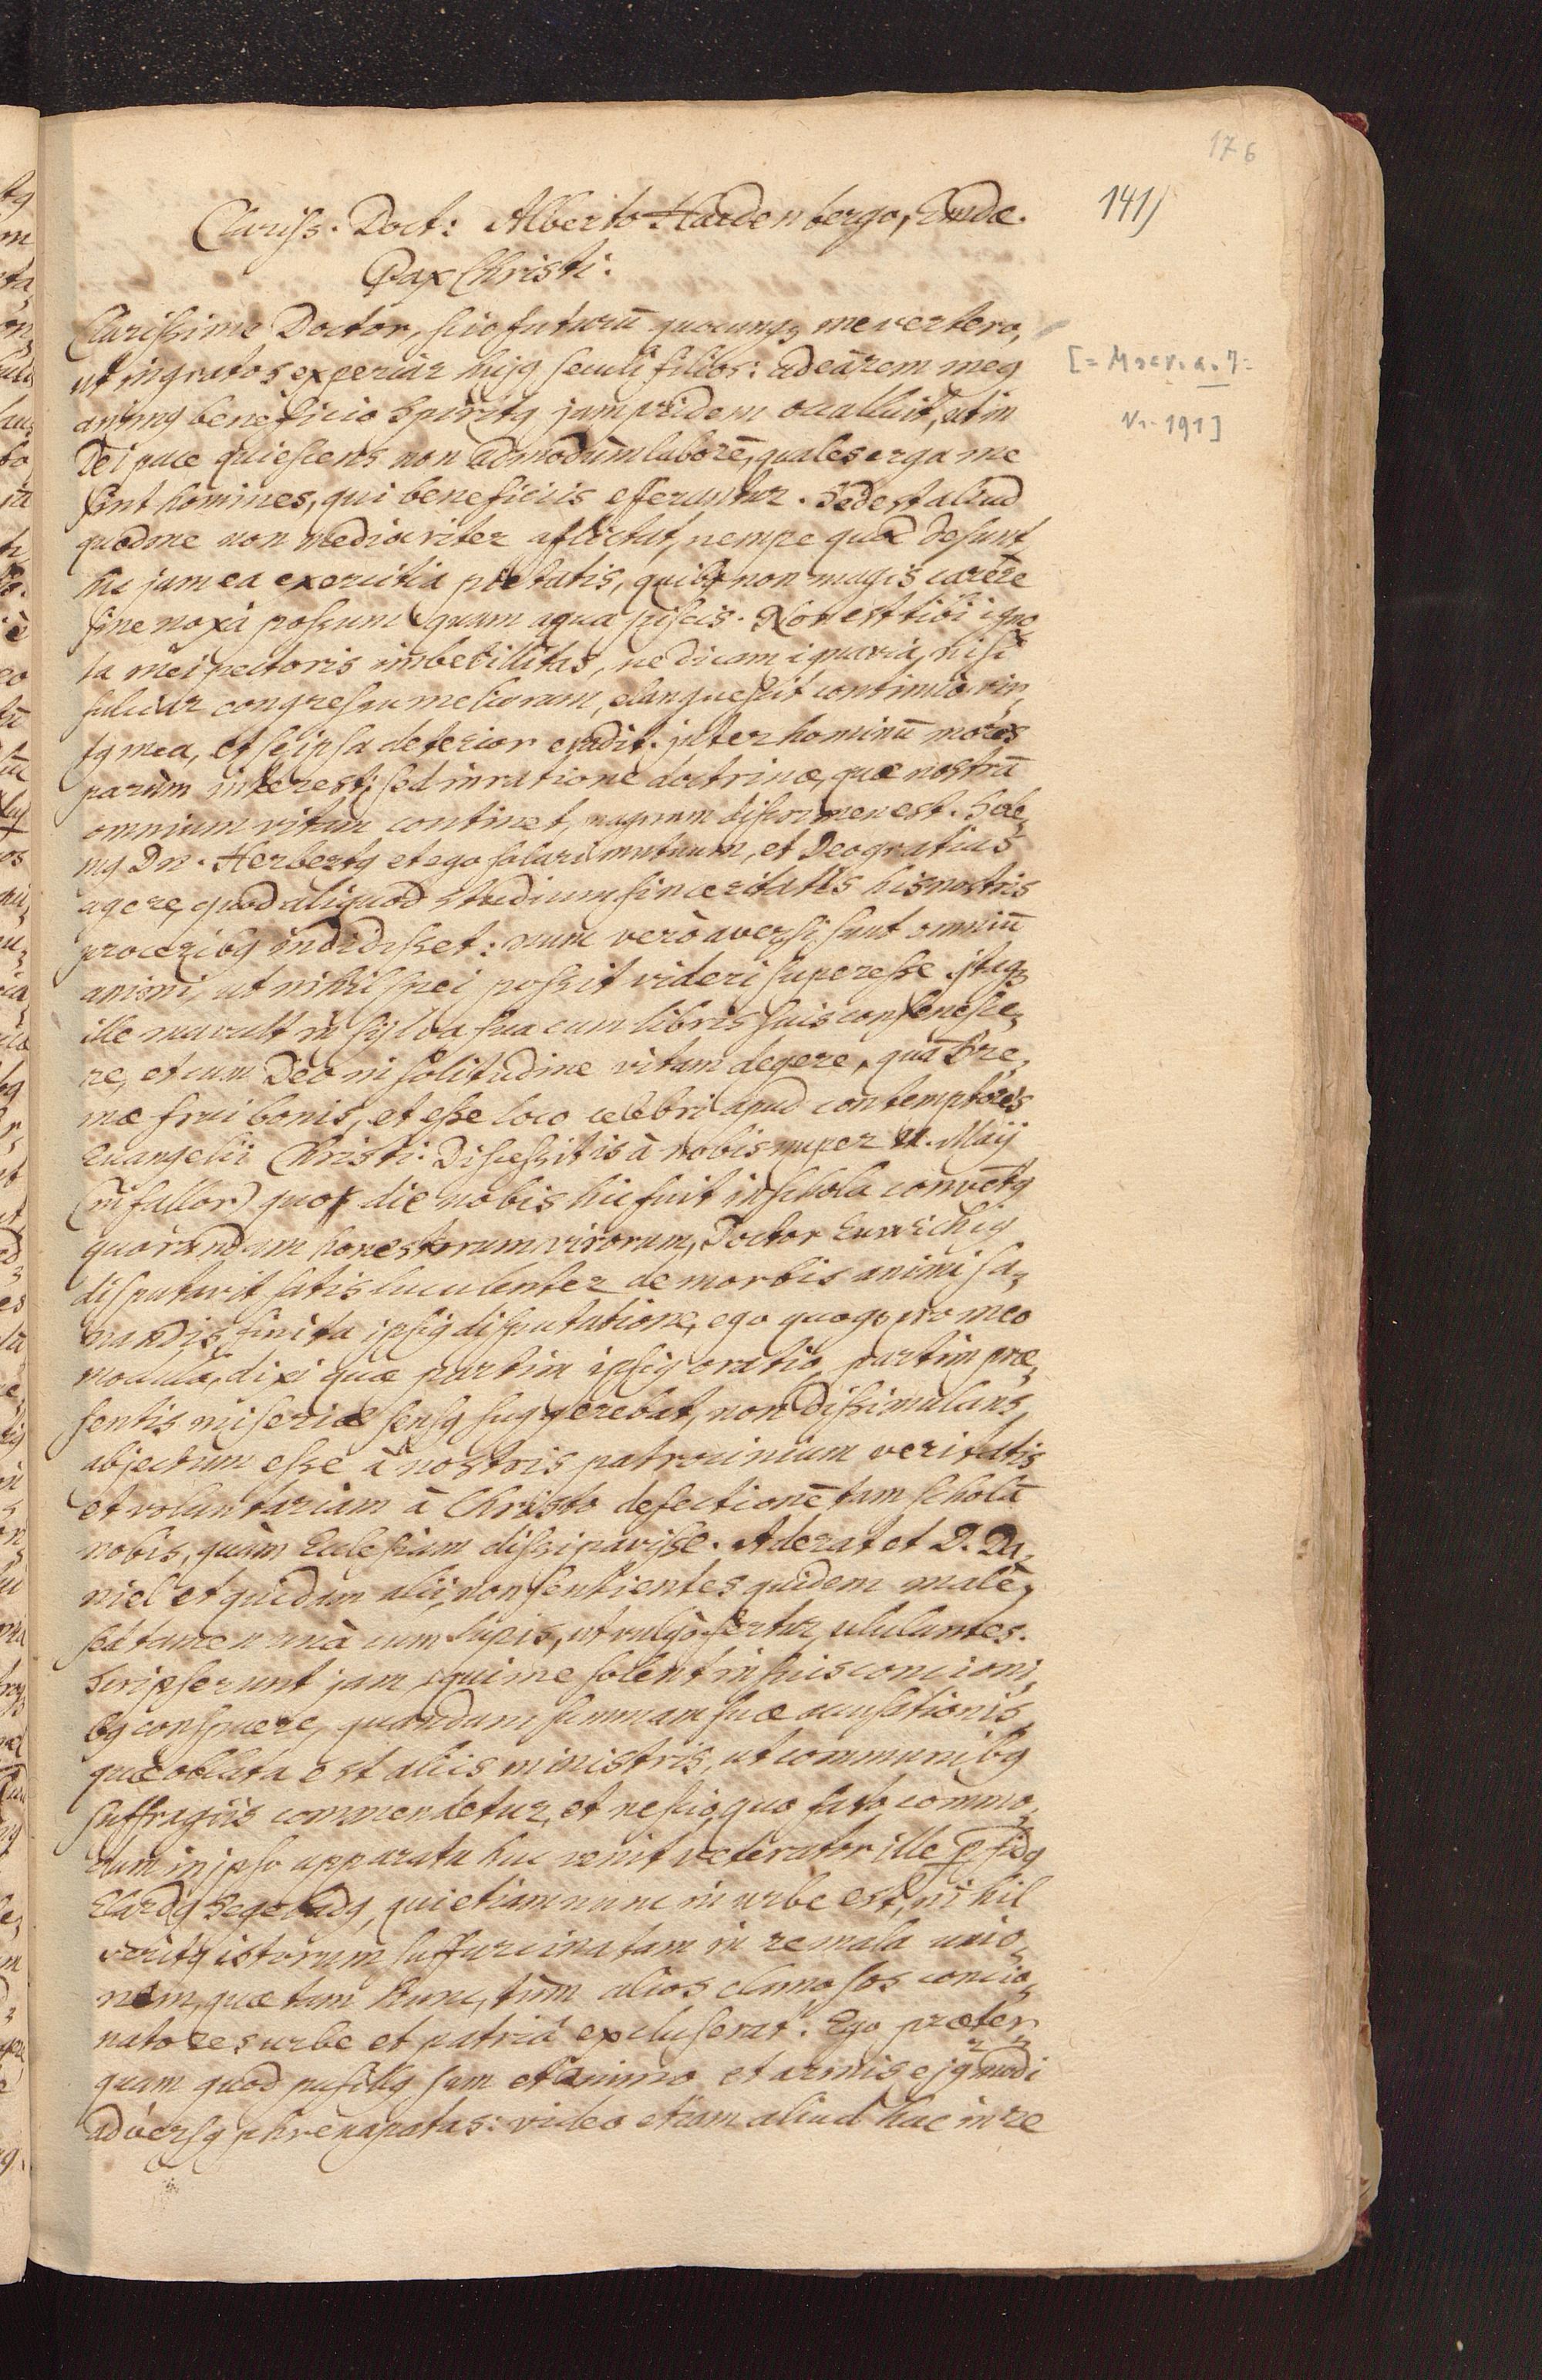 176
141)
Clariss. Doct: Alberto Hardenbergo, Emdæ.
Pax Christi.
[= Mscr. a. 7:
Nr. 191]
Clarissime Doctor, scio futurū quocunq; me vertero,
ut ingratos experiar hujꝰ seculi filios: ad eā rem meꝰ
animꝰ beneficio Spiritꝰ jampridem occalluit, ut in
Dei pace quiescens non admodùm laborē, quales erga me
sint homines, qui beneficiis efferuntur. Sed est aliud
quod me non mediocriter afflictat, nempe quod desunt
hic jam ea exercitia pietatis, quibꝰ non magis carere
sine noxâ possum quam aqua piscis. Non est tibi igno,
ta mei pectoris imbecillitas, ne dicam ignavia, nisi
fulciar congressu meliorum, elanguescit continuò vir,
tꝰ mea, et seipsa deterior evadit. Inter hominū mores
parùm interest; sed in ratione doctrinæ, quæ nostrā
omnium vitam continet, magnum discrimen est. Sole,
mꝰ Dn. Herbertꝰ et ego solari mutuum, et Deo gratias
agere, quod aliquod studium sinceritatis his nostris
proceribꝰ indidisset: nunc verò aversi sunt omniū
animi, ut nihil spei possit videri superesse. Itaq;
ille mavult in sylva sua cum libris suis consenesce,
re, et cum Deo in solitudine vitam degere, quā Bre,
mæ frui bonis, et esse loco celebri apud contemptores
Evangelii Christi. Discessit is à nobis nuper 11. Maij
(ni fallor) quo die nobis hic fuit in schola convētꝰ
quorundam honestorum virorum, Doctor Euvrichiꝰ
disputavit satis luculenter de morbis animi sa,
nandis, finita ipsiꝰ disputatione, ego quoq; pro meo
modulo, dixi quæ partim ipsiꝰ oratio, partim præ,
sentis miseriæ sensꝰ suggerebat, non dissimulans,
abjectum esse à nostris patrocinium veritatis
et voluntariam à Christo defectionē tam scholā
nobis, quàm Ecclesiam dissipavisse. Aderat et D. Da,
niel et quidam alii, non sentientes quidem malè,
sed tamen unà cum lupis, ut vulgò fertur, ululantes.
Scripserunt jam, qui me solent in suis concioni,
bꝰ conspuere, quandam summam suæ accusationis,
quæ oblata est aliis ministris, ut communibꝰ
suffragiis commendetur, et nescio, quo fato commo,
dum in ipso apparatu huc venit veterator ille p̄fidꝰ
Elardꝰ Segebadꝰ, qui etiamnunc in urbe est, nihil
veritꝰ istorum suffurcinatam in re mala unio,
nem, quæ tam hunc, tùm alios clamosos concio,
natores urbe et patriâ excluserat. Ego præter,
quam quod pusillꝰ sum et animo et armis ejꝰmodi
adversꝰ phrenapatas: video etiam aliud hac in re